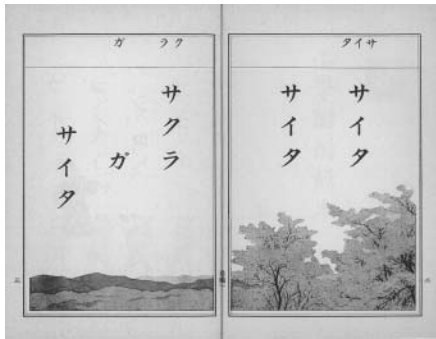 サイタ
サイタ
サイタ
クラ ガ
サクラ
ガ
サイタ
三